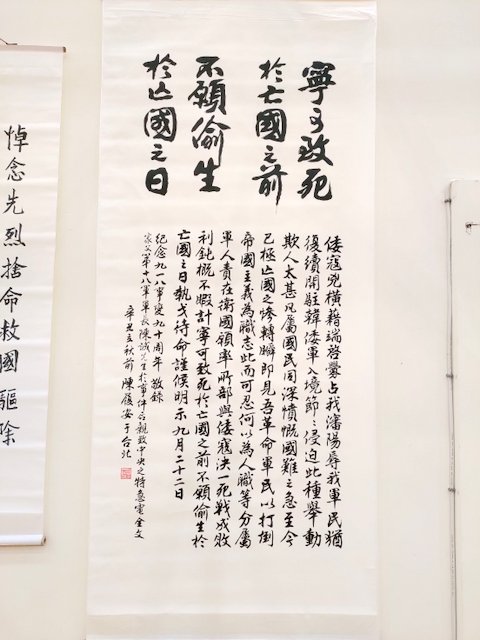 寧可致死
於亡國之前
不願偷生
於亡國之日
倭寇兇橫藉端啓釁占我瀋陽辱我軍民猶
復續開駐韓倭軍入境節〻侵迫此種舉動
欺人太甚凡屬國民同深憤慨國難之急至今
已極亡國之慘轉瞬即見吾革命軍民以打倒
帝國主義為職志此而可忍何以為人職等分屬
軍人責在衛國願率所部與倭寇決一死戰成敗
利鈍概不暇計寧可致死於亡國之前不願偷生於
亡國之日執戈待命謹候明示九月二十二日
紀念九一八事變九十周年 敬錄
家父第十八軍軍長陳誠先生於事件后親致中央之特急電全文
辛丑立秋前 陳履安于台北
悼念先烈捨命救國驅除